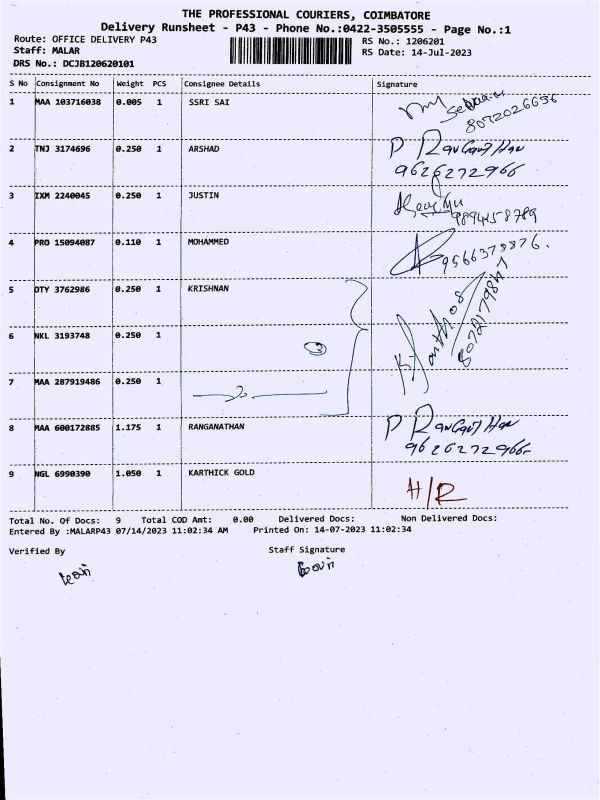 THE PROFESSIONAL COURIERS, COIMBATORE
Delivery Runsheet - P43 - Phone No.:0422-3505555 - Page No.:1
Route: OFFICE DELIVERY P43 RS No.: 1206201
Staff: MALAR RS Date: 14-Jul-2023
DRS No.: DCJB120620101
S No Consignment No Weight PCS Consignee Details Signature
1 MAA 103716038 0.005 1 SSRI SAI
8072026696
2 TNJ 3174696 0.250 1 ARSHAD P
9626272966
3 IXM 2240045 0.250 1 JUSTIN
9894458789
4 PRO 15094087 0.110 1 MOHAMMED
9566379876.
5 OTY 3762986 0.250 1 KRISHNAN
6 NKL 3193748 0.250 1
3
7 MAA 287919486 0.250 1
8 MAA 600172885 1.175 1 RANGANATHAN P
9626272966
9 NGL 6990390 1.050 1 KARTHICK GOLD
H/R
Total No. Of Docs: 9 Total COD Amt: 0.00 Delivered Docs: Non Delivered Docs:
Entered By :MALARP43 07/14/2023 11:02:34 AM Printed On: 14-07-2023 11:02:34
Verified By Staff Signature